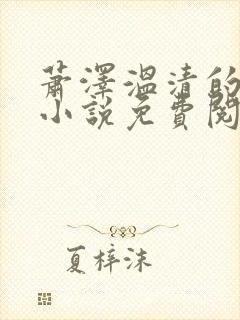 萧澤溫清的
小說免費閱
夏梓沫